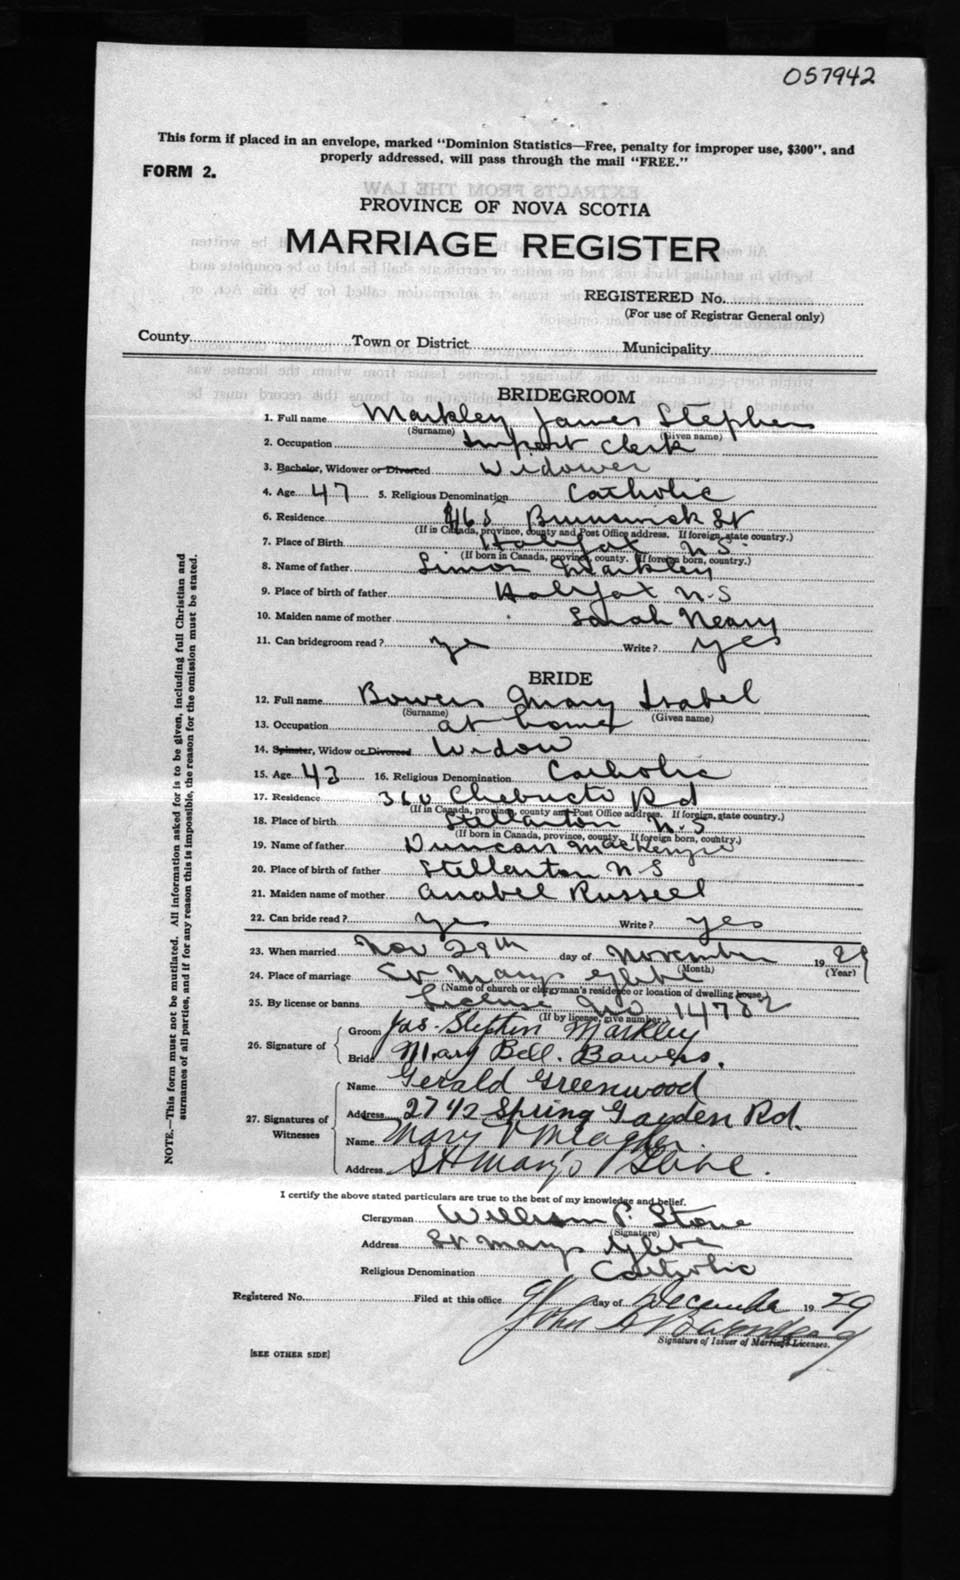 057942
This form if placed in an envelope, marked "Dominion Statistics—Free, penalty for improper use, $300", and
properly addressed, will pass through the mail "FREE."
FORM 2.
PROVINCE OF NOVA SCOTIA
MARRIAGE REGISTER
REGISTERED No.
(For use of Registrar General only)
County Town or District Municipality
BRIDEGROOM
1. Full name Markley James Stephen
(Surname) (Given name)
2. Occupation Import Clerk
3. Bachelor, Widower or Divorced Widower
4. Age 47 5. Religious Denomination Catholic
6. Residence Brunswick St
(If in Canada, province, county and Post Office address. If foreign, state country.)
7. Place of Birth Halifax N.S.
(If born in Canada, province, county. If foreign born, country.)
8. Name of father Simon Markley
9. Place of birth of father Halifax N-S
10. Maiden name of mother Sarah Neary
11. Can bridegroom read? ye Write? yes
BRIDE
12. Full name Bowers Mary Isabel
(Surname) (Given name)
13. Occupation at home
14. Spinster, Widow or Divorced Widow
15. Age 43 16. Religious Denomination Catholic
17. Residence 360 Chebucto Rd
(If in Canada, province, county and Post Office address. If foreign, state country.)
18. Place of birth Stellarton N-S
(If born in Canada, province, county. If foreign born, country.)
19. Name of father Duncan MacKenzie
20. Place of birth of father Stellarton N-S
21. Maiden name of mother Anabel Russell
22. Can bride read? yes Write? yes
23. When married Nov 29th day of November 1929
(Month) (Year)
24. Place of marriage St Marys Glebe
(Name of church or clergyman's residence or location of dwelling house.)
25. By license or banns License No 14782
(If by license, give number.)
26. Signature of Groom Jas. Stephen Markley
Bride Mary Bell. Bowers.
27. Signatures of Witnesses Name Gerald Greenwood
Address 27 1/2 Spring Garden Rd.
Name Mary Meagher.
Address St Mary's Glebe.
I certify the above stated particulars are true to the best of my knowledge and belief.
Clergyman William P. Stone
(Signature)
Address St Marys Glebe
Religious Denomination Catholic
Registered No. Filed at this office day of December 1929
John
Signature of Issuer of Marriage Licenses.
[SEE OTHER SIDE]
NOTE.—This form must not be mutilated. All information asked for is to be given, including full Christian and
surnames of all parties, and if for any reason this is impossible, the reason for the omission must be stated.